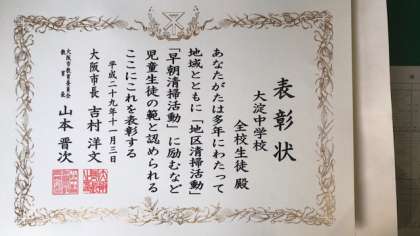 表彰状
大淀中学校
全校生徒 殿
あなたがたは多年にわたって
地域とともに「地区清掃活動」
「早朝清掃活動」に励むなど
児童生徒の範と認められる
ここにこれを表彰する
平成二十九年十一月三日
大阪市長 吉村洋文
大阪市教育委員会
教育長 山本晋次